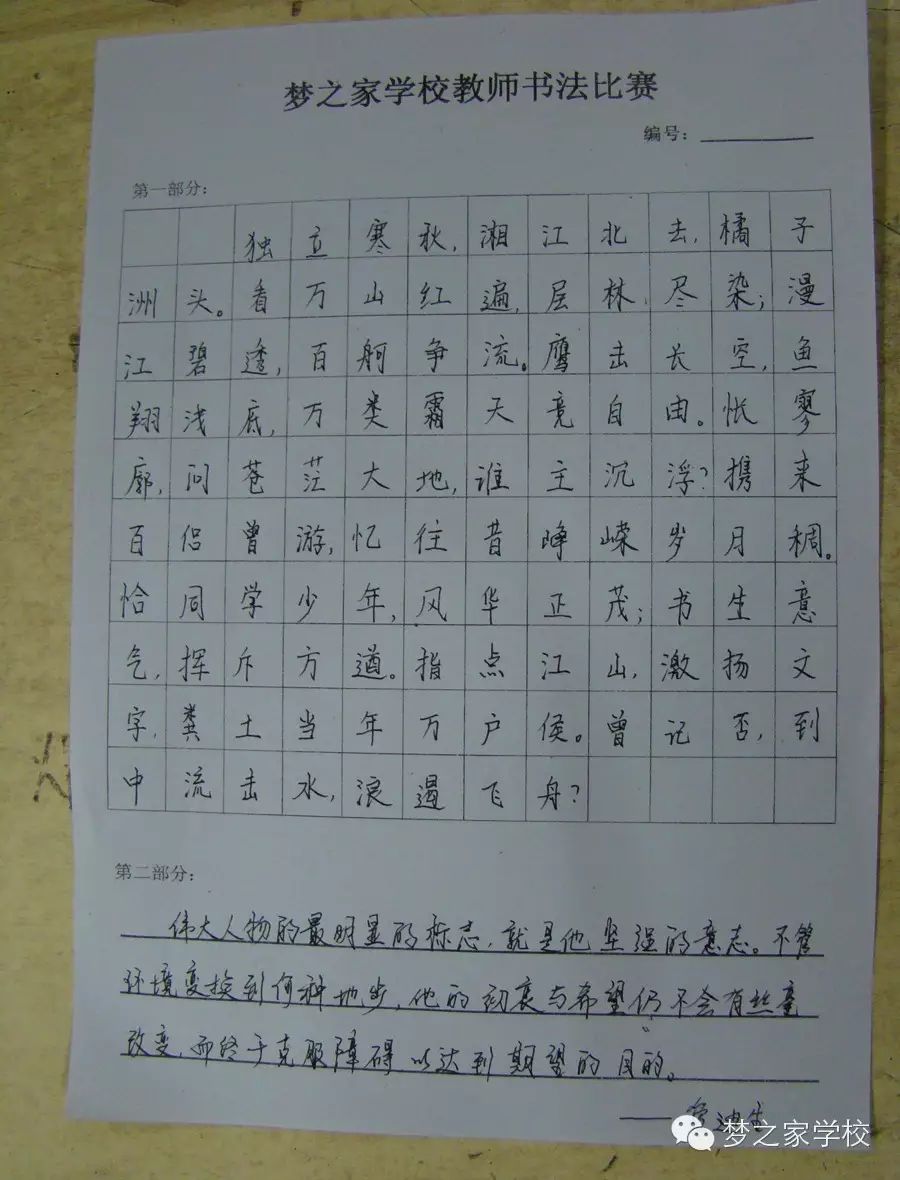 梦之家学校教师书法比赛
编号：
第一部分：
独立寒秋，湘江北去，橘子
洲头。看万山红遍，层林尽染；漫
江碧透，百舸争流。鹰击长空，鱼
翔浅底，万类霜天竞自由。怅寥
廓，问苍茫大地，谁主沉浮？携来
百侣曾游，忆往昔峥嵘岁月稠。
恰同学少年，风华正茂；书生意
气，挥斥方遒。指点江山，激扬文
字，粪土当年万户侯。曾记否，到
中流击水，浪遏飞舟？
第二部分：
伟大人物的最明显的标志，就是他坚强的意志。不管
环境变换到何种地步，他的初衷与希望仍不会有丝毫
改变，而终于克服障碍以达到期望的目的。
——爱迪生
梦之家学校